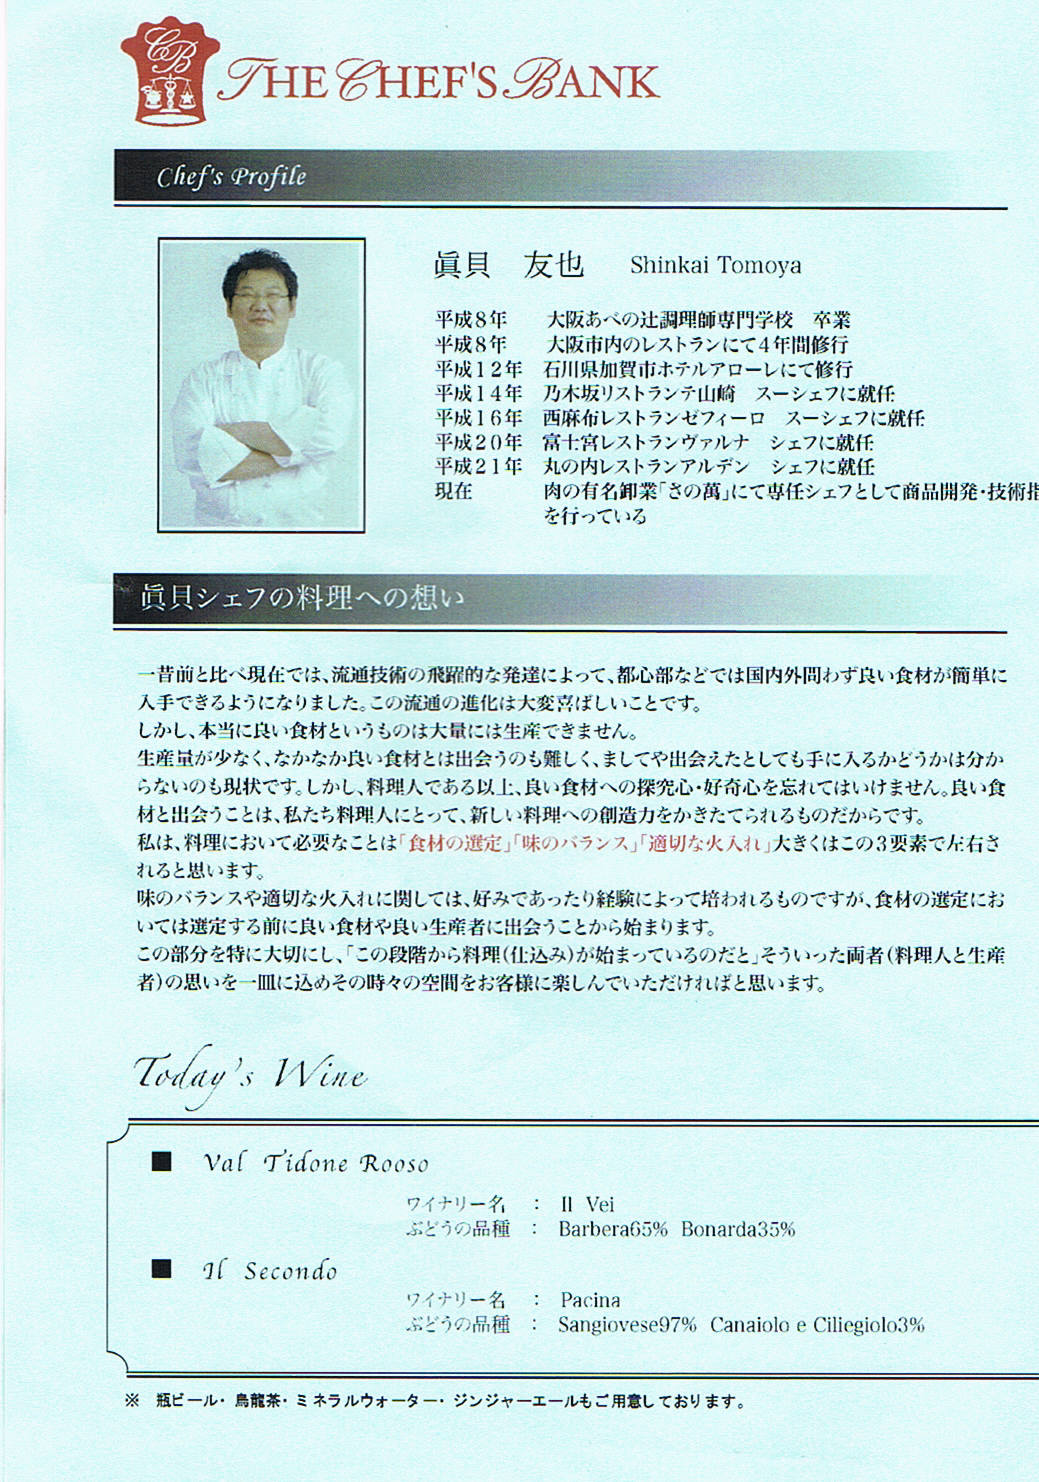 CB
THE CHEF'S BANK
Chef's Profile
眞貝　友也　Shinkai Tomoya
平成８年　大阪あべの辻調理師専門学校　卒業
平成８年　大阪市内のレストランにて４年間修行
平成１２年　石川県加賀市ホテルアローレにて修行
平成１４年　乃木坂リストランテ山崎　スーシェフに就任
平成１６年　西麻布レストランゼフィーロ　スーシェフに就任
平成２０年　富士宮レストランヴァルナ　シェフに就任
平成２１年　丸の内レストランアルデン　シェフに就任
現在　肉の有名卸業「さの萬」にて専任シェフとして商品開発・技術指
を行っている
眞貝シェフの料理への想い
一昔前と比べ現在では、流通技術の飛躍的な発達によって、都心部などでは国内外問わず良い食材が簡単に
入手できるようになりました。この流通の進化は大変喜ばしいことです。
しかし、本当に良い食材というものは大量には生産できません。
生産量が少なく、なかなか良い食材とは出会うのも難しく、ましてや出会えたとしても手に入るかどうかは分か
らないのも現状です。しかし、料理人である以上、良い食材への探究心・好奇心を忘れてはいけません。良い食
材と出会うことは、私たち料理人にとって、新しい料理への創造力をかきたてられるものだからです。
私は、料理において必要なことは「食材の選定」「味のバランス」「適切な火入れ」大きくはこの３要素で左右さ
れると思います。
味のバランスや適切な火入れに関しては、好みであったり経験によって培われるものですが、食材の選定にお
いては選定する前に良い食材や良い生産者に出会うことから始まります。
この部分を特に大切にし、「この段階から料理(仕込み)が始まっているのだと」そういった両者(料理人と生産
者)の思いを一皿に込めその時々の空間をお客様に楽しんでいただければと思います。
Today's Wine
■ Val Tidone Rooso
ワイナリー名　：　Il Vei
ぶどうの品種　：　Barbera65% Bonarda35%
■ Il Secondo
ワイナリー名　：　Pacina
ぶどうの品種　：　Sangiovese97% Canaiolo e Ciliegiolo3%
※　瓶ビール・烏龍茶・ミネラルウォーター・ジンジャーエールもご用意しております。